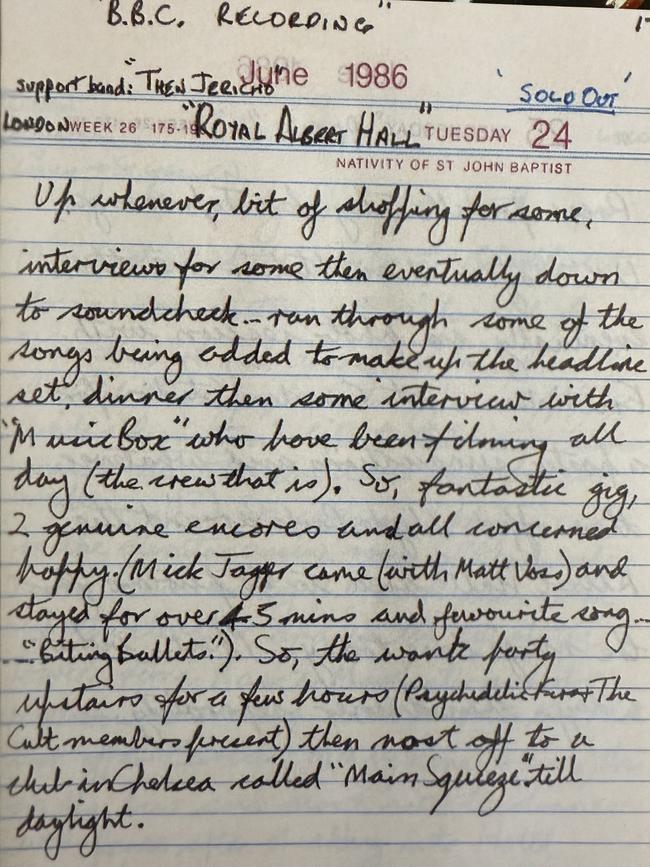 "B.B.C. RECORDING"
June 1986
support band: "THEN JERICHO"
'SOLD OUT'
LONDON WEEK 26 175-19 "ROYAL ALBERT HALL" TUESDAY 24
NATIVITY OF ST JOHN BAPTIST
Up whenever, bit of shopping for some,
interviews for some then eventually down
to soundcheck... ran through some of the
songs being added to make up the headline
set, dinner then some interview with
"MusicBox" who have been filming all
day (the crew that is). So, fantastic gig,
2 genuine encores and all concerned
happy. (Mick Jagger came (with Matt Voss) and
stayed for over 45 mins and favourite song...
..."Biting Bullets".). So, the wank party
upstairs for a few hours (Psychedelic Furs + The
Cult members present) then most off to a
club in Chelsea called "Main Squeeze" till
daylight.